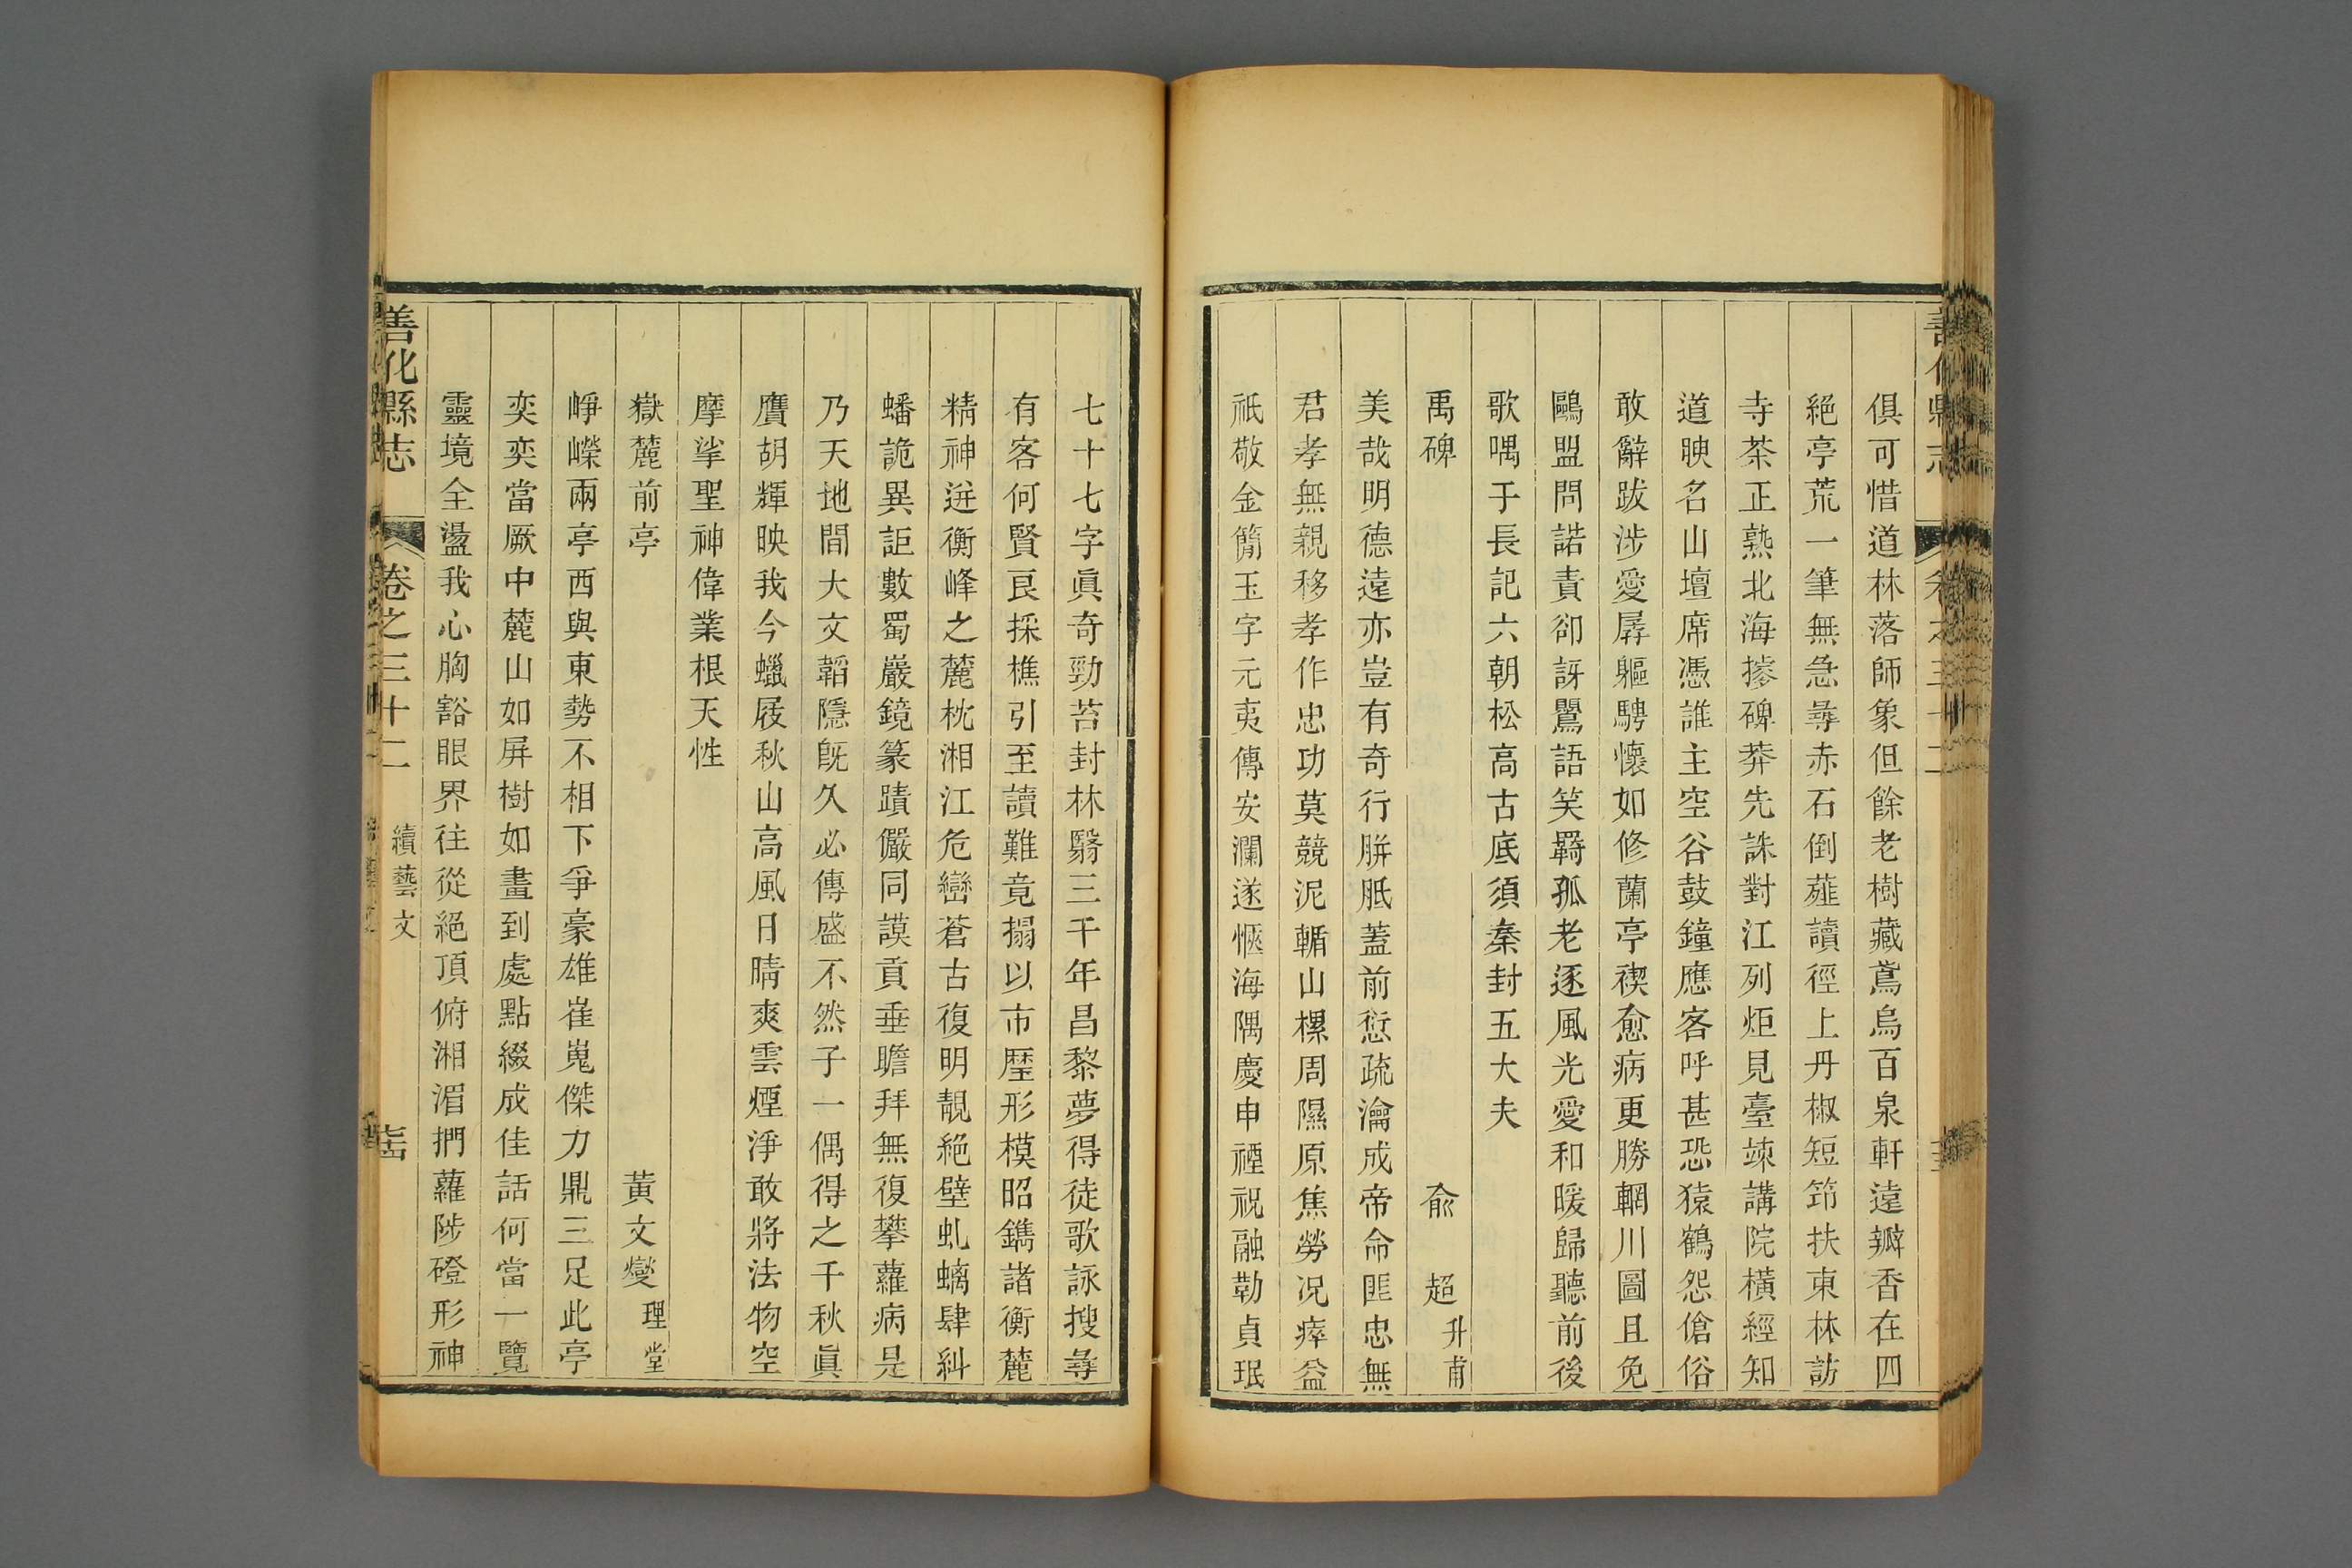 俱可惜道林落師象但餘老樹藏鳶烏百泉軒遠瓣香在四
絕亭荒一筆無急彝赤石倒薤讀徑上丹椒短笻扶東林訪
寺茶正熟北海摻碑莽先誅對江列炬見臺竦講院橫經知
道映名山壇席憑誰主空谷鼓鐘應客呼甚恐猿鶴怨傖俗
敢辭跋涉愛孱軀騁懷如修蘭亭禊愈病更勝輞川圖且免
鷗盟問諾責卻訝鷖語笑羇孤老逐風光愛和暖歸聽前後
歌喁于長記六朝松高古底須秦封五大夫
禹碑 俞超升甫
美哉明德遠亦豈有奇行胼胝蓋前愆疏瀹成帝命匪忠無
君孝無親移孝作忠功莫競泥輴山樏周隰原焦勞況瘁益
祇敬金簡玉字元夷傳安瀾遂愜海隅慶申禋祝融勒貞珉
七十七字眞奇勁苔封林翳三千年昌黎夢得徒歌詠搜彝
有客何賢良採樵引至讀難竟搨以市歷形模昭鐫諸衡麓
精神迸衡峰之麓枕湘江危巒蒼古復明靚絕壁虬螭肆糾
蟠詭異詎數蜀巖鏡篆蹟儼同謨貢垂瞻拜無復攀蘿病是
乃天地間大文韜隱旣久必傳盛不然子一偶得之千秋眞
贗胡輝映我今蠟屐秋山高風日晴爽雲煙淨敢將法物空
摩挲聖神偉業根天性
嶽麓前亭 黃文燮理堂
崢嶸兩亭西與東勢不相下爭豪雄崔嵬傑力鼎三足此亭
奕奕當厥中麓山如屏樹如畫到處點綴成佳話何當一覽
靈境全盪我心胸豁眼界往從絕頂俯湘湄捫蘿陟磴形神
善化縣志 卷之三十二 續藝文 七十四